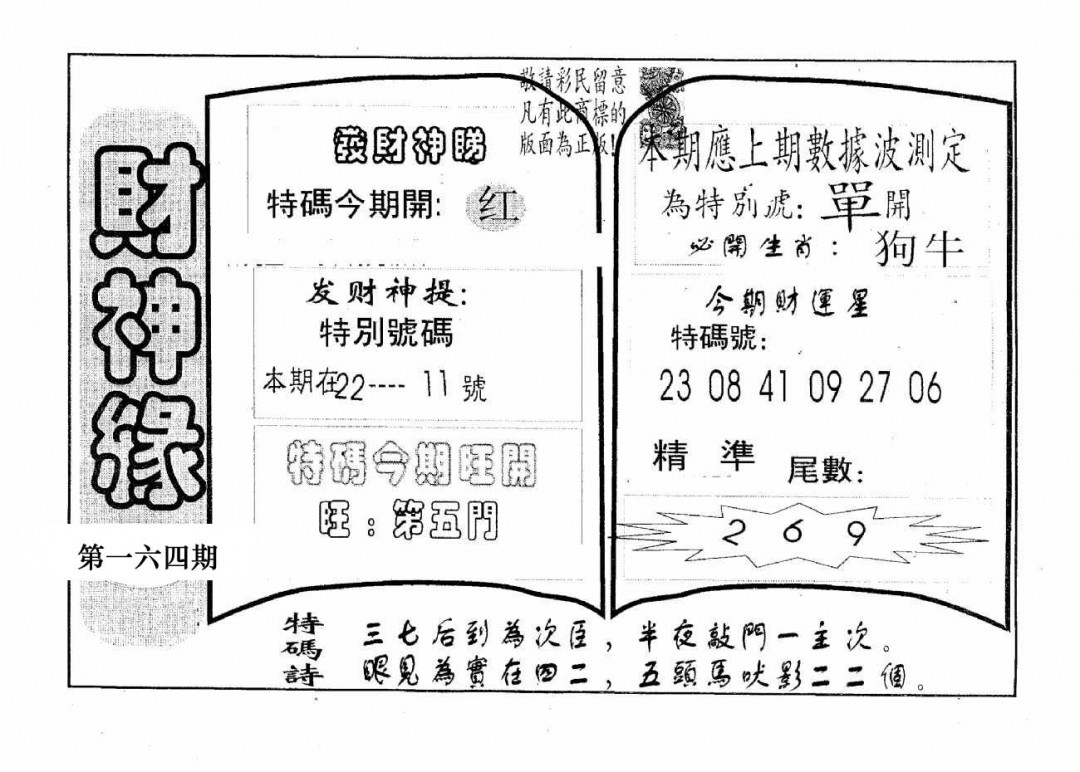 財神緣
第一六四期
敬請彩民留意
凡有此商標的
版面為正版!
發財神睇
特碼今期開: 红
发财神提:
特別號碼
本期在22----11號
特碼今期旺開
旺:第五門
本期應上期數據波測定
為特別號:單開
必開生肖:狗牛
今期財運星
特碼號:
23 08 41 09 27 06
精準 尾數:
2 6 9
特碼詩
三七后到為次臣,半夜敲門一主次。
眼見為實在四二,五頭馬吠影二二個。